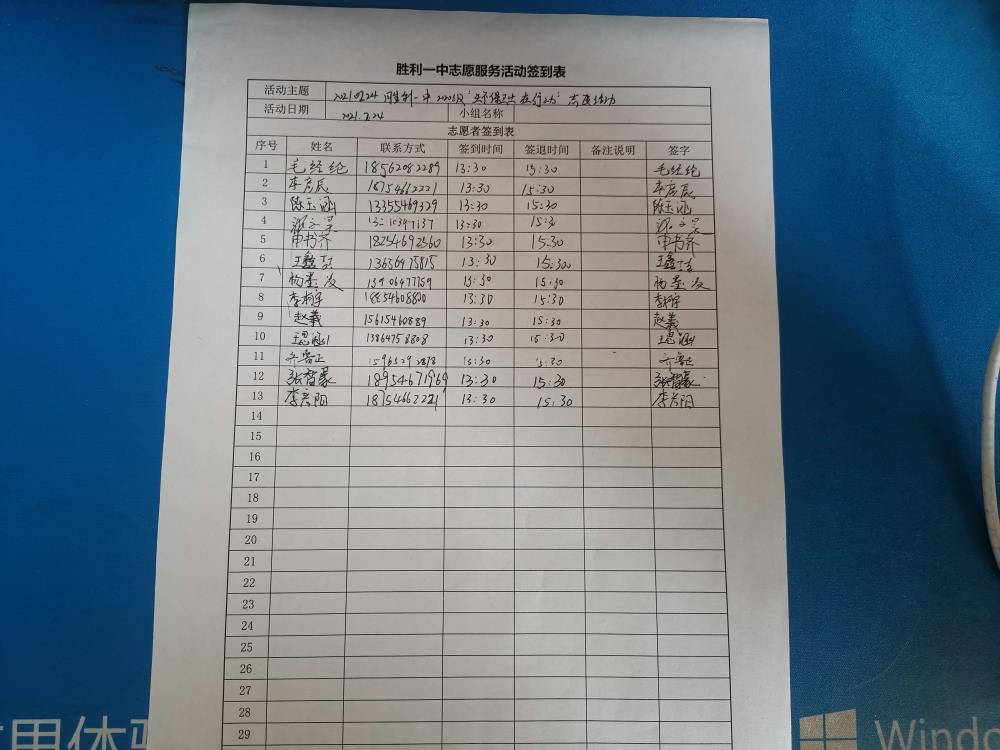 胜利一中志愿服务活动签到表
活动主题 20210724 胜利一中 2020级"环保卫士 在行动"志愿活动
活动日期 2021.7.24 小组名称
志愿者签到表
序号 姓名 联系方式 签到时间 签退时间 备注说明 签字
1 毛经纶 18562082289 13:30 15:30 毛经纶
2 李彦辰 18754662221 13:30 15:30 李彦辰
3 陈玉涵 13355469329 13:30 15:30 陈玉涵
4 13:30 15:30
5 申书齐 18254692560 13:30 15:30 申书齐
6 13656475815 13:30 15:300
7 杨墨友 13906477759 13:30 15:30 杨墨友
8 李炳宇 18854608800 13:30 15:30 李炳宇
9 赵義 15615460889 13:30 15:30 赵義
10 王思涵 13864758808 13:30 15:30 王思涵
11 13:30 15:30
12 张智豪 18954671969 13:30 15:30 张智豪
13 李彦阳 18754662221 13:30 15:30 李彦阳
14
15
16
17
18
19
20
21
22
23
24
25
26
27
28
29
Windo